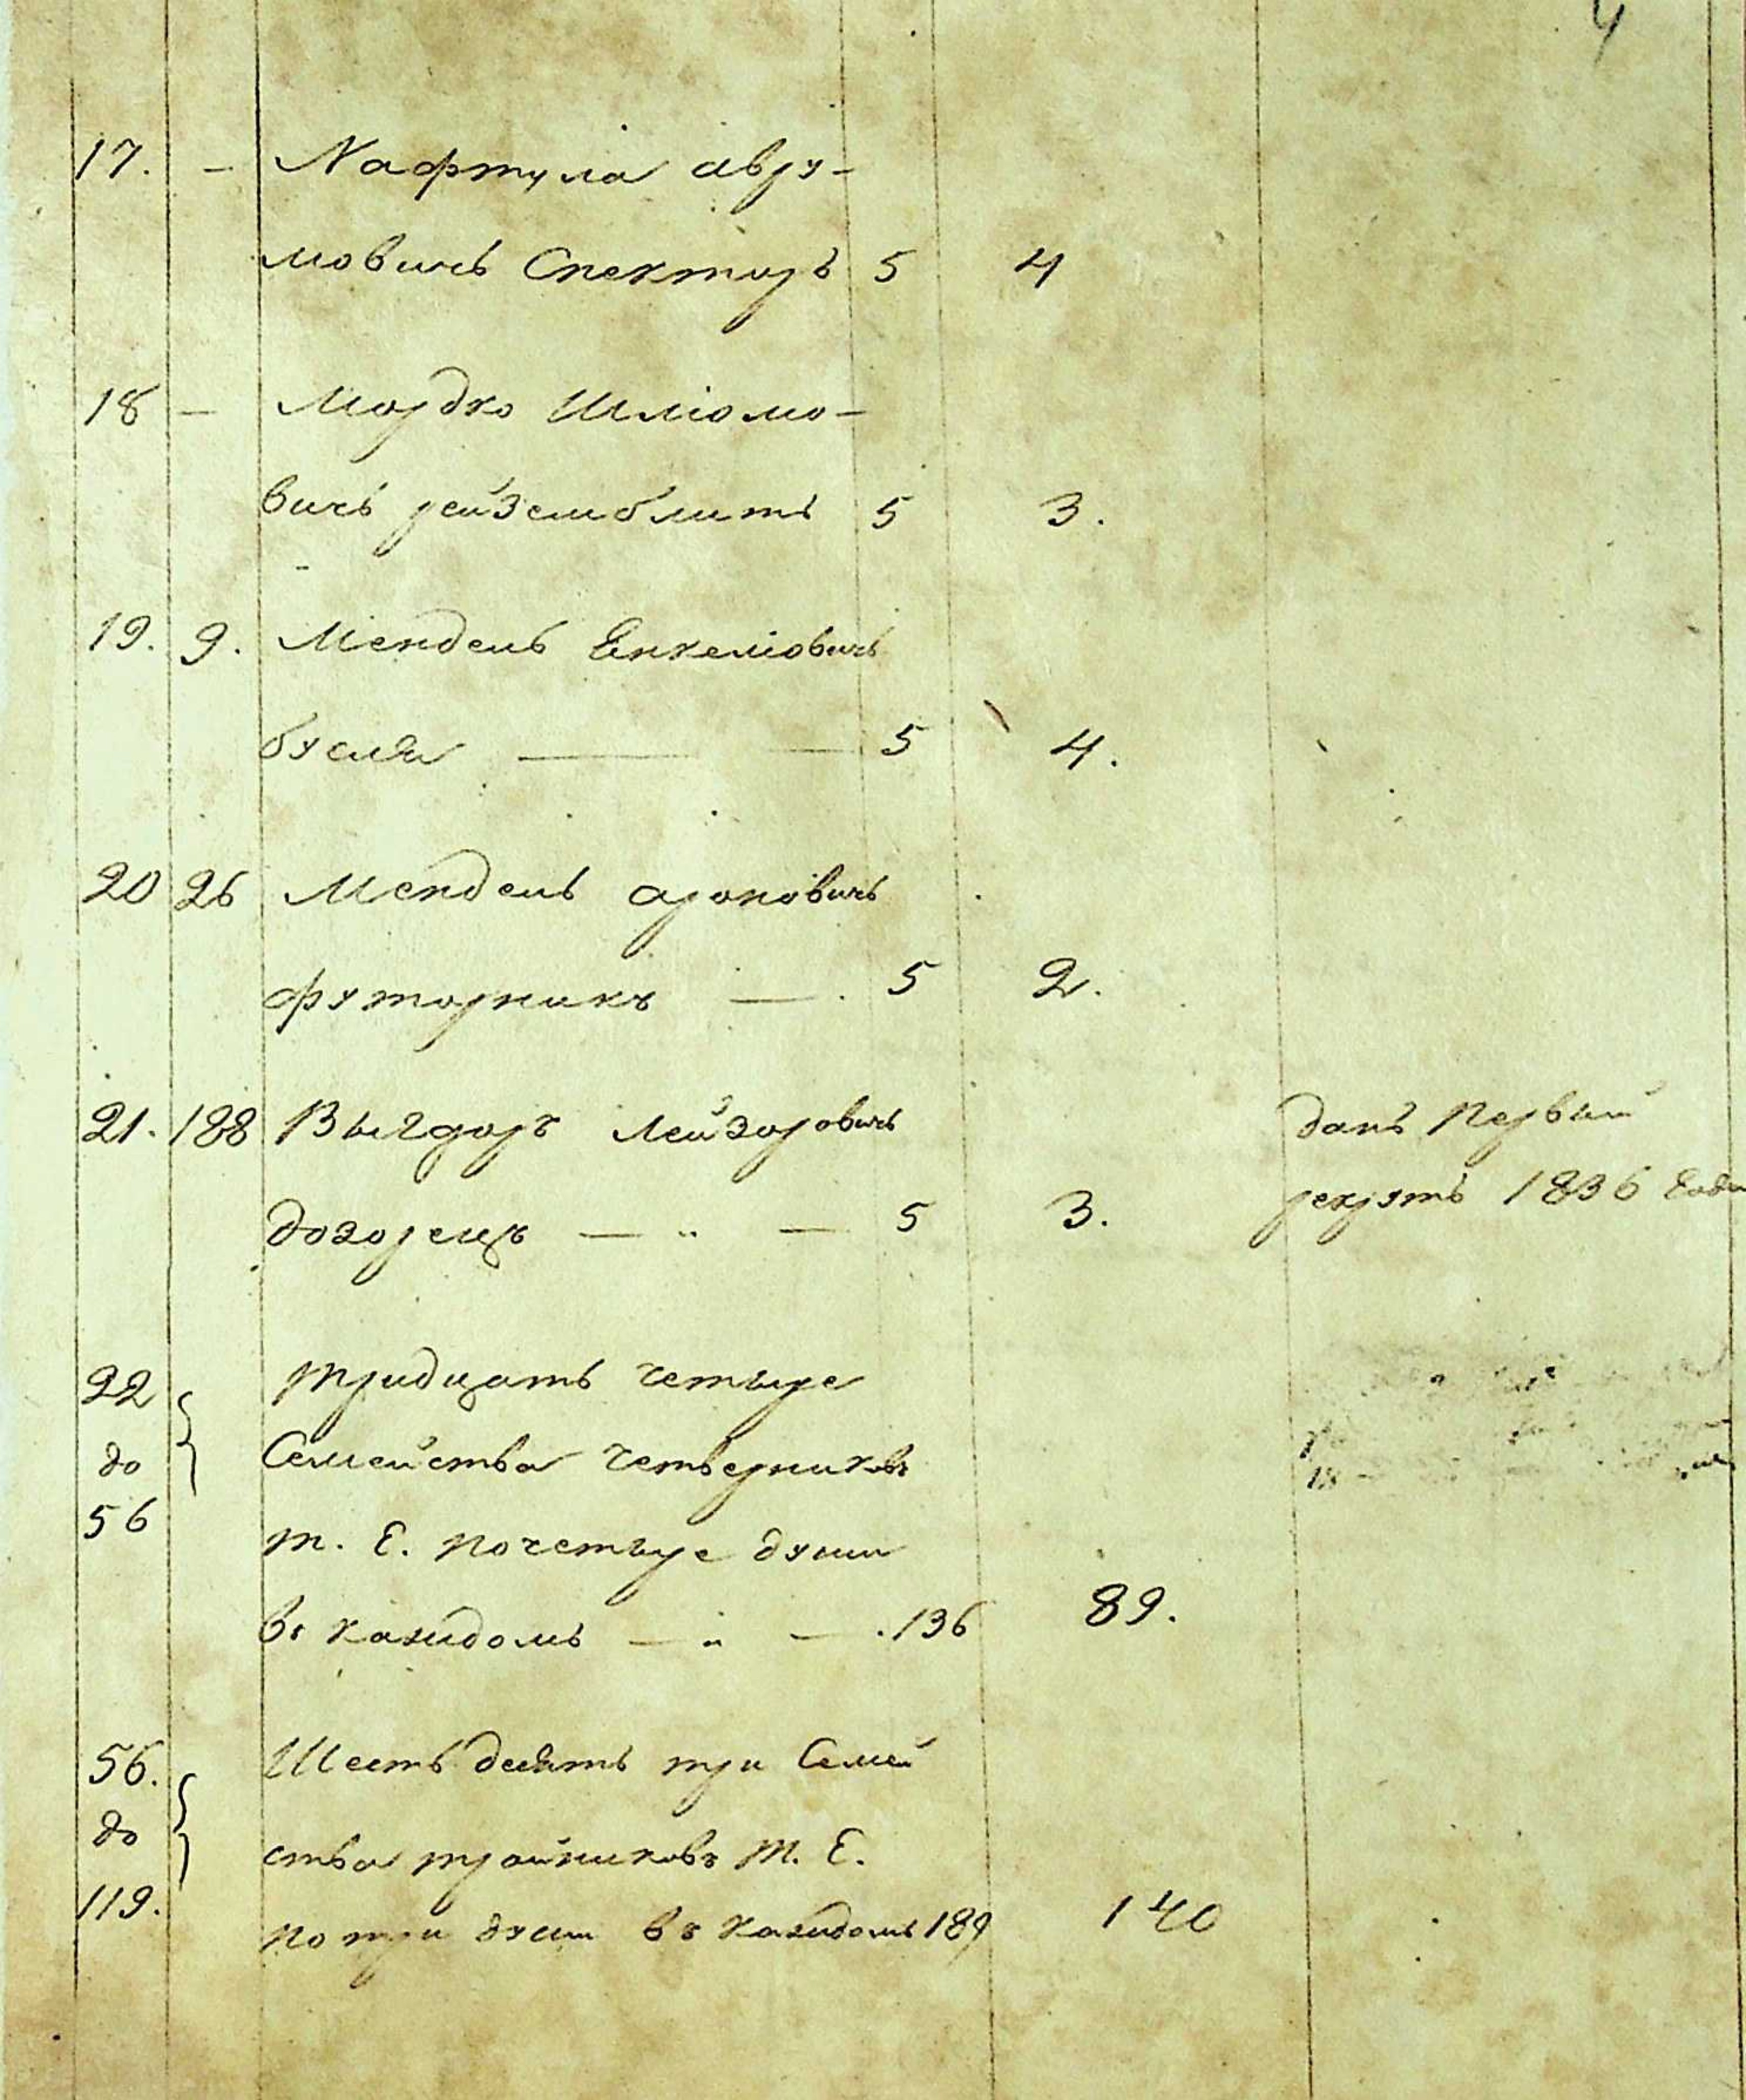 4
17. - Нафтула Авру-
мовичъ Спекторъ 5 4
18 - Мордко Шліомо-
вичъ рейземблитъ 5 3.
19. 9. Мендель Енкеліовичъ
5 4.
20 26 Мендель ароновичъ
футорникъ — . 5 2.
21. 188 Выгдоръ Лейзоровичъ данъ Первый
дозорецъ — „ — 5 3. рекрутъ 1836 Года
22 тридцать четыре
до Семейства четверниковъ
56 т. Е. почетыре души
въ каждомъ — „ — . 136 89.
56. Шестьдесятъ три Семей
до ства тройниковъ т. Е.
119. по три души въ каждомъ 189 140